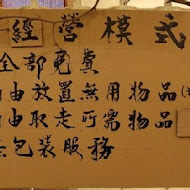 經營模式
全部免費
由放置無用物品
由取走所需物品
包裝服務